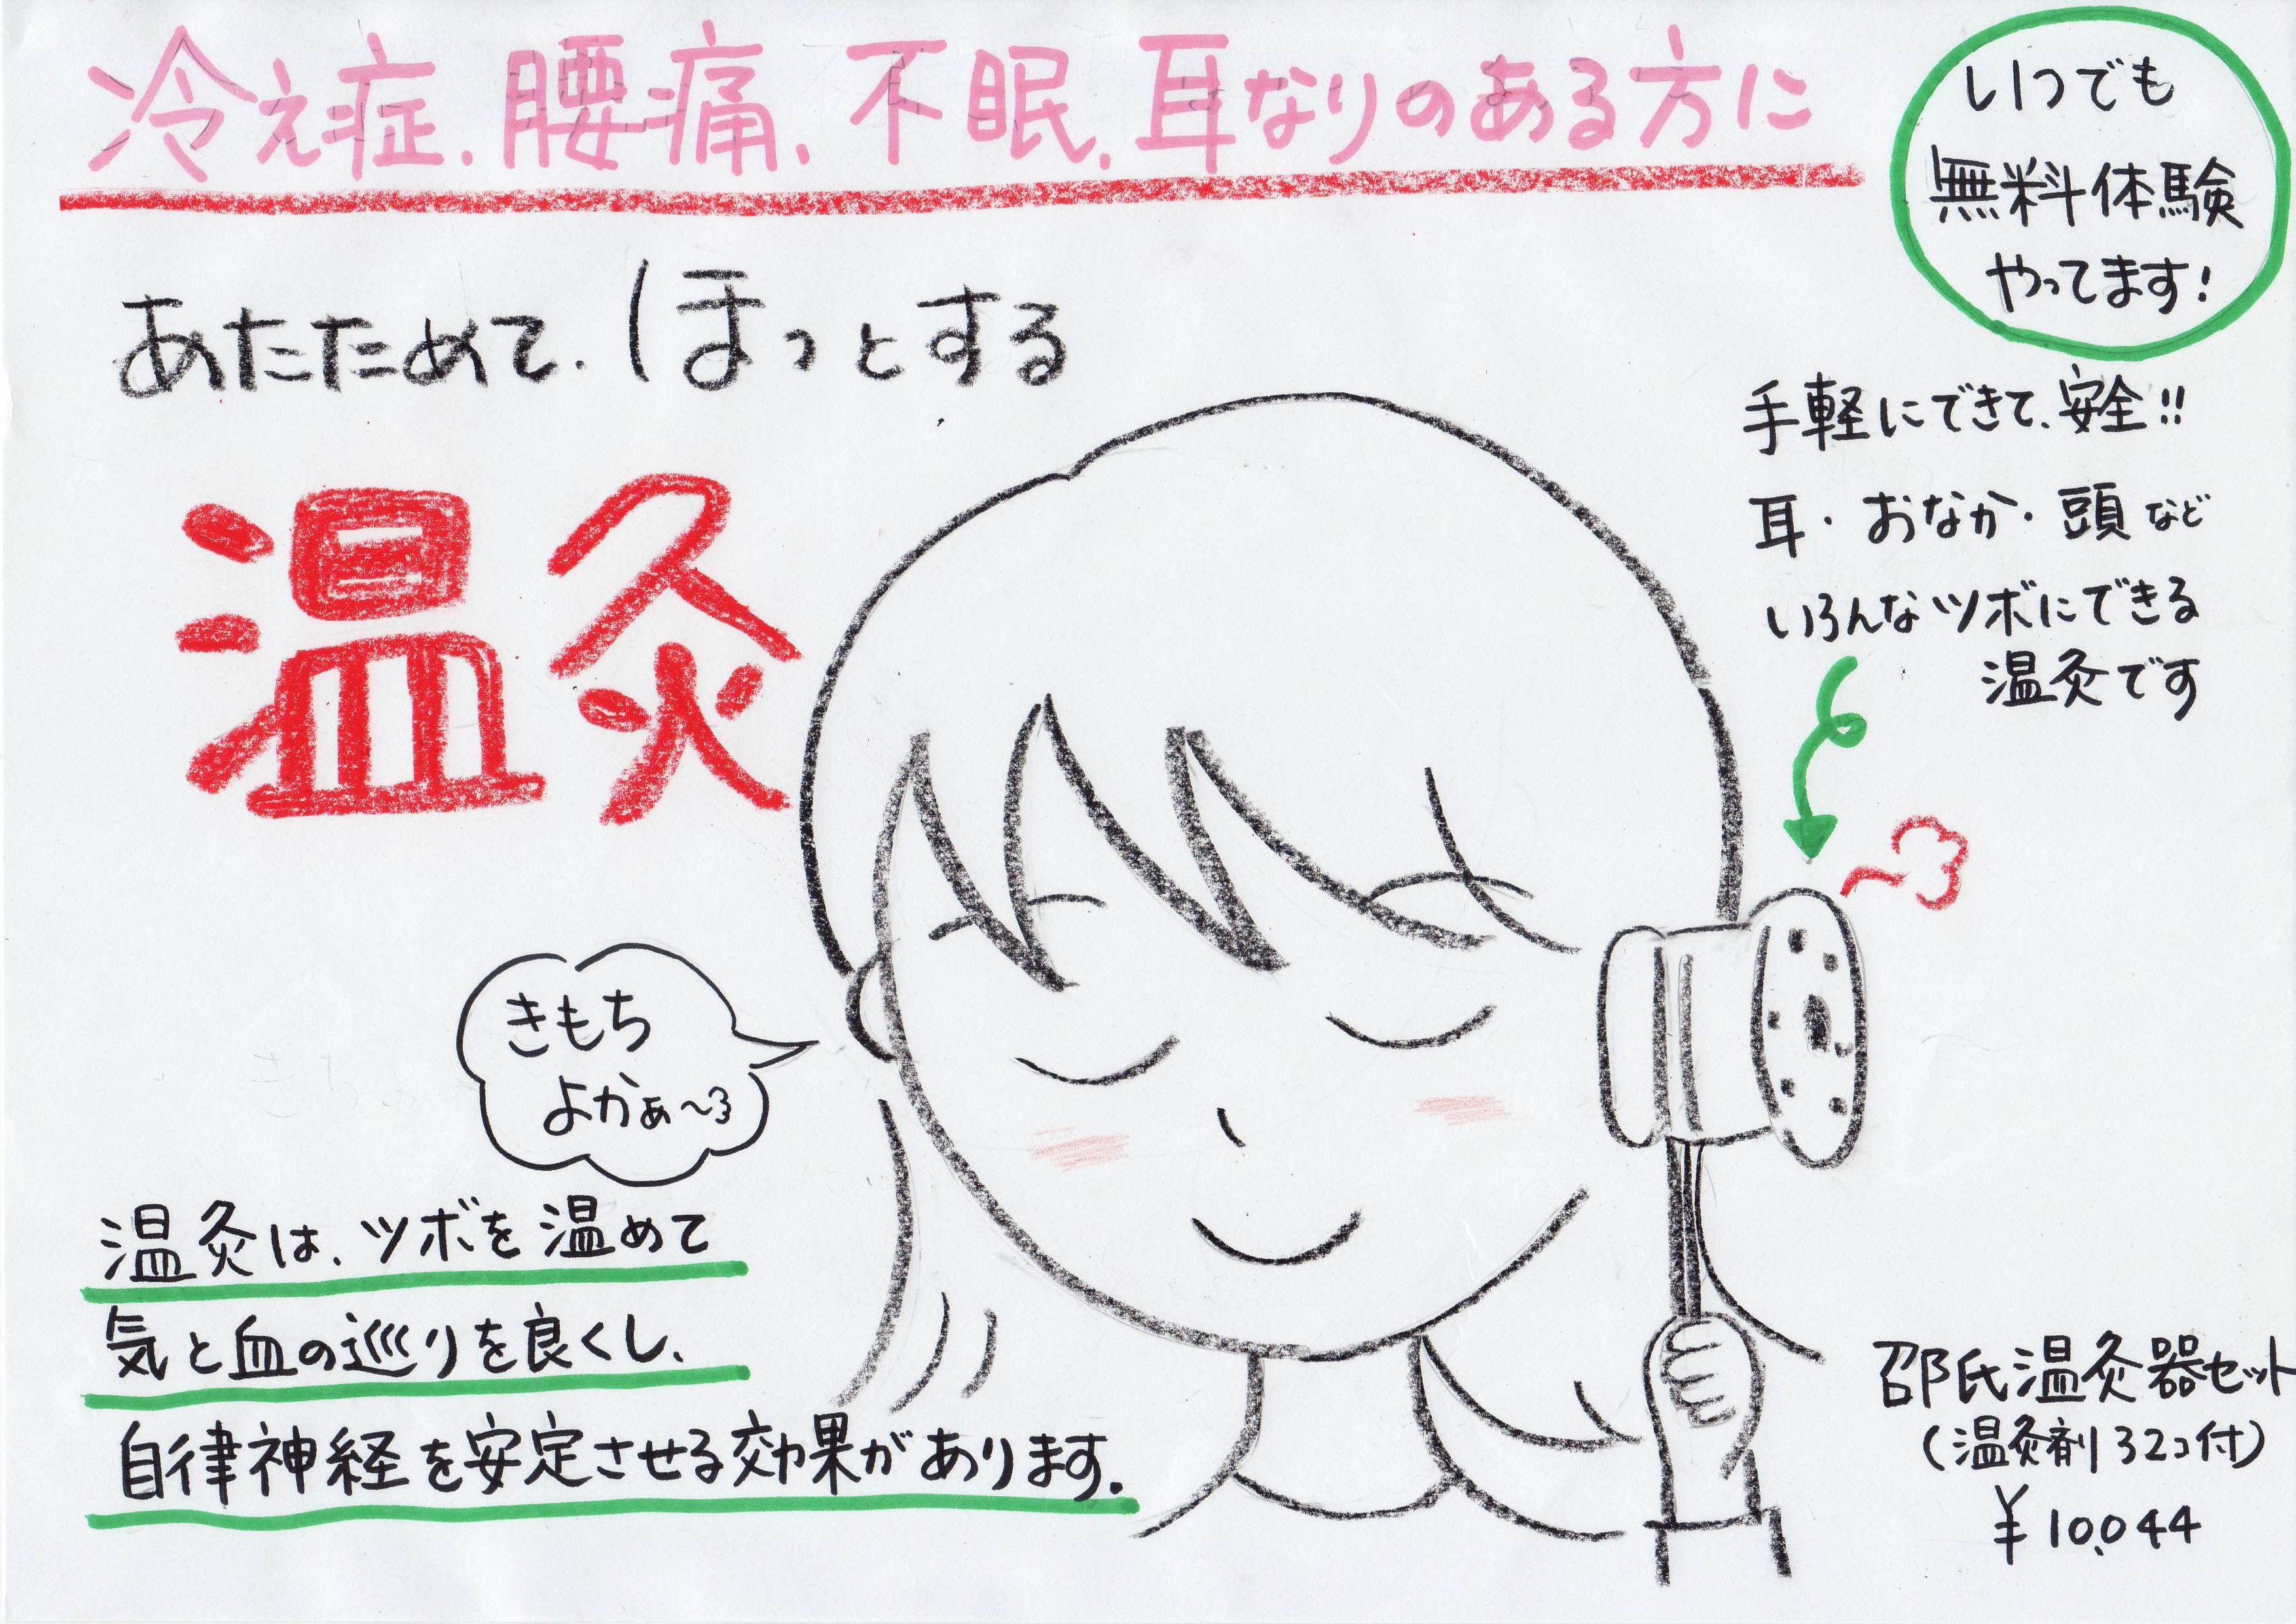 冷え症、腰痛、不眠、耳なりのある方に
いつでも
無料体験
やってます!
あたためて、ほっとする
温灸
手軽にできて、安全!!
耳・おなか・頭など
いろんなツボにできる
温灸です
きもち
よかぁ〜
温灸は、ツボを温めて
気と血の巡りを良くし、
自律神経を安定させる効果があります。
邵氏温灸器セット
(温灸剤32コ付)
¥10,044